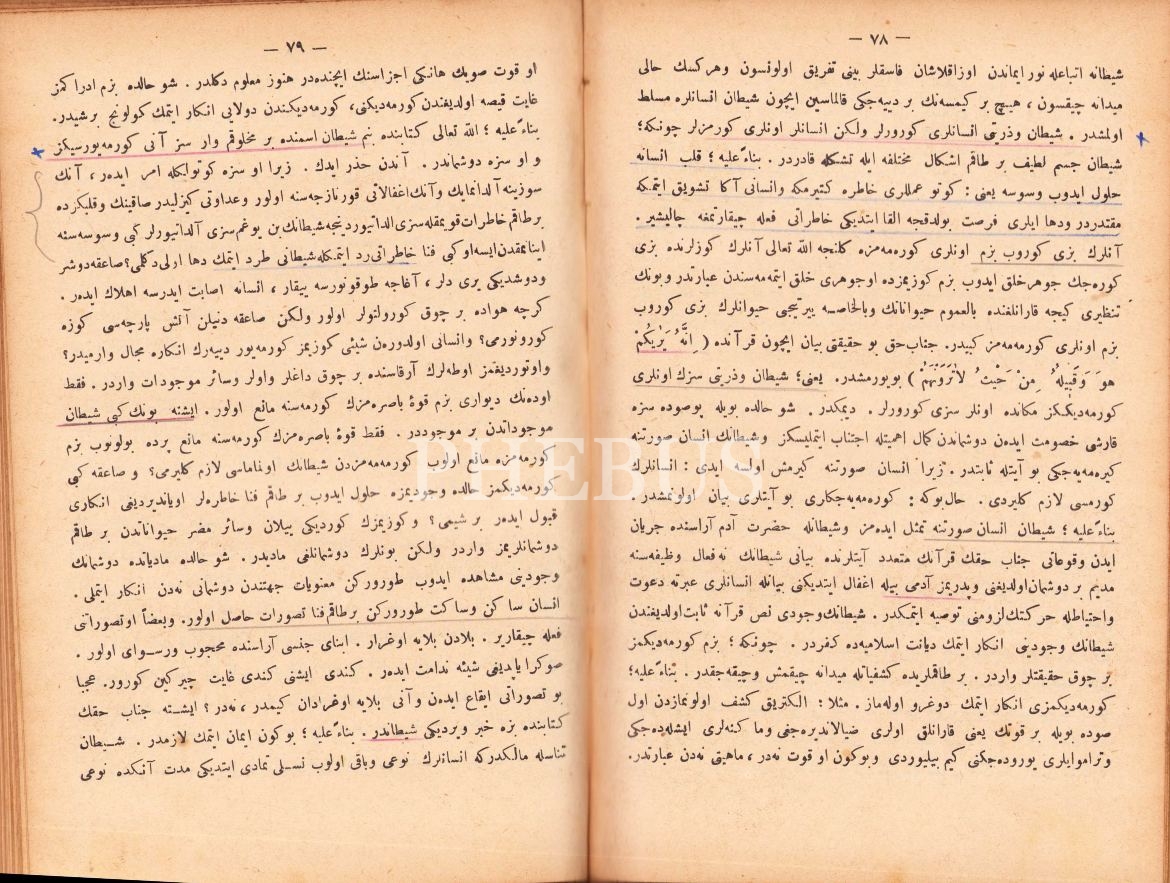 — ٧٨ —
شيطانه اتباعله نور ايماندن اوزاقلاشان فاسقلر بينى تفريق اولونسون وهركسك حالى
ميدانه چيقسون ، هيچ بر كيمسه‌نك بر دييه‌جكى قالماسين ايچون شيطان انسانلره مسلط
اولمشدر . شيطان وذريتى انسانلرى كورورلر ولكن انسانلر اونلرى كورمزلر چونكه؛
شيطان جسم لطيف بر طاقم اشكال مختلفه ايله تشكله قادردر . بناءً عليه ؛ قلب انسانه
حلول ايدوب وسوسه يعنى : كوتو عمللرى خاطره كتيرمكه وانسانى آكا تشويق ايتمكه
مقتدردر ودها ايلرى فرصت بولدقجه القا ايتديكى خاطراتى فعله چيقارتمغه چاليشير .
آنلرك بزى كوروب بزم اونلرى كورمه‌مه‌مزه كلنجه الله تعالى آنلرك كوزلرنده بزى
كوره‌جك جوهر خلق ايدوب بزم كوزيمزده اوجوهرى خلق ايتمه‌مه‌سندن عبارتدر وبونك
تنظيرى كيجه قارانلغنده بالعموم حيواناتك وبالخاصه ييرتيجى حيوانلرك بزى كوروب
بزم اونلرى كورمه‌مه‌مز كبيدر . جناب حق بو حقيقتى بيان ايچون قرآنده ( اِنَّهُ يَرٰيكُمْ
هوَ وَقَبٖيلُهُ مِنْ حَيْثُ لاٰتَرَوْنَهُمْ ) بويورمشدر . يعنى؛ شيطان وذريتى سزك اونلرى
كورمه‌ديككز مكانده اونلر سزى كورورلر . ديمكدر . شو حالده بويله پوصوده سزه
قارشى خصومت ايده‌ن دوشماندن كمال اهميتله اجتناب ايتمليسكز وشيطانك انسان صورتنه
كيره‌ميه‌جكى بو آيتله ثابتدر . زيرا انسان صورتنه كيرمش اولسه ايدى : انسانلرك
كورمسى لازم كليردى . حال‌بوكه : كوره‌ميه‌جكلرى بو آيتلرى بيان اولونمشدر .
بناءً عليه ؛ شيطان انسان صورتنه تمثل ايده‌مز وشيطانله حضرت آدم آراسنده جريان
ايدن وقوعاتى جناب حقك قرآنك متعدد آيتلرنده بيانى شيطانك نه فعال وظيفه‌سنه
مديم بر دوشمان اولديغنى وپدريمز آدمى بيله اغفال ايتديكنى بيانله انسانلرى عبرته دعوت
واحتياطله حركتك لزومنى توصيه ايتمكدر . شيطانك وجودى نص قرآنه ثابت اولديغندن
شيطانك وجودينى انكار ايتمك ديانت اسلاميه‌ده كفردر . چونكه ؛ بزم كورمه‌ديكمز
بر چوق حقيقتلر واردر . بر طاقملرىده كشفياتله ميدانه چيقمش وچيقه‌جقدر . بناءً عليه؛
كورمه‌ديكمزى انكار ايتمك دوغرو اوله‌ماز . مثلا : الكتريق كشف اولونمازدن اول
صوده بويله بر قوتك يعنى قارانلق اولرى ضيالانديره‌جغنى وماكنه‌لرى ايشله‌ده‌جكى
وتراموايلرى يوروده‌جكنى كيم بيليوردى وبوكون او قوت نه‌در ، ماهيتى نه‌دن عبارتدر.
— ٧٩ —
او قوت صويك هانكى اجزاسنك ايچنده‌در هنوز معلوم دكلدر . شو حالده بزم ادراكمز
غايت قيصه اولديغندن كورمه‌ديكنى، كورمه‌ديكندن دولايى انكار ايتمك كولونج برشيدر.
بناءً عليه ؛ الله تعالى كتابنده بنم شيطان اسمنده بر مخلوقم وار سز آنى كورمه‌يورسيكز
و او سزه دوشماندر . آندن حذر ايدك . زيرا او سزه كوتولكله امر ايده‌ر ، آنك
سوزينه آلدانمايك وآنك اغفالاتى قورنازجه‌سنه اولور وعداوتى كيزليدر صاقينك وقلبكزده
بر طاقم خاطرات قويمقله سزى آلداتيور دينجه شيطانك بن يوغم سزى آلداتيورلر كبى وسوسه‌سنه
اينانمقدن ايسه او كبى فنا خاطراتى رد ايتمكله شيطانى طرد ايتمك دها اولى دكلمى؟ صاعقه دوشر
ودوشديكى يرى دلر ، آغاجه طوقونورسه ييقار ، انسانه اصابت ايدرسه اهلاك ايده‌ر .
كرچه هواده بر چوق كورولتولر اولور ولكن صاعقه دنيلن آتش پارچه‌سى كوزه
كورونورمى؟ وانسانى اولدوره‌ن شيئى كوزيمز كورمه‌يور دييه‌رك انكاره محال وارميدر؟
واوتورديقمز اوطه‌لرك آرقاسنده بر چوق داغلر واولر وسائر موجودات واردر . فقط
اوده‌نك ديوارى بزم قوۀ باصره‌مزك كورمه‌سنه مانع اولور . ايشته بونك كبى شيطان
موجوداتدن بر موجوددر . فقط قوۀ باصره‌مزك كورمه‌سنه مانع پرده بولونوب بزم
كورمه‌مزه مانع اولوب كورمه‌مه‌مزدن شيطانك اولماماسى لازم كليرمى؟ و صاعقه كبى
كورمه‌ديكمز حالده وجوديمزه حلول ايدوب بر طاقم فنا خاطره‌لر اويانديرديغى انكارى
قبول ايده‌ر بر شيمى؟ وكوزيمزك كورديكى ييلان وسائر مضر حيواناتدن بر طاقم
دوشمانلريمز واردر ولكن بونلرك دوشمانلغى ماديدر . شو حالده مادياتده دوشمانك
وجودينى مشاهده ايدوب طورورركن معنويات جهتندن دوشمانى نه‌دن انكار ايتملى .
انسان ساكن وساكت طورورركن بر طاقم فنا تصورات حاصل اولور. وبعضاً اوتصوراتى
فعله چيقارير . بلادن بلايه اوغرار . ابناى جنسى آراسنده محجوب ورسواى اولور .
صوكرا ياپديغى شيئه ندامت ايده‌ر . كندى ايشنى كندى غايت چيركين كورور. عجبا
بو تصوراتى ايقاع ايده‌ن وآنى بلايه اوغرادان كيمدر ، نه‌در ؟ ايشته جناب حقك
كتابنده بزه خبر ويرديكى شيطاندر . بناءً عليه ؛ بوكون ايمان ايتمك لازمدر . شيطان
تناسله مالكدركه انسانلرك نوعى وباقى اولوب نسلى تمادى ايتديكى مدت آنكده نوعى
PHEBUS